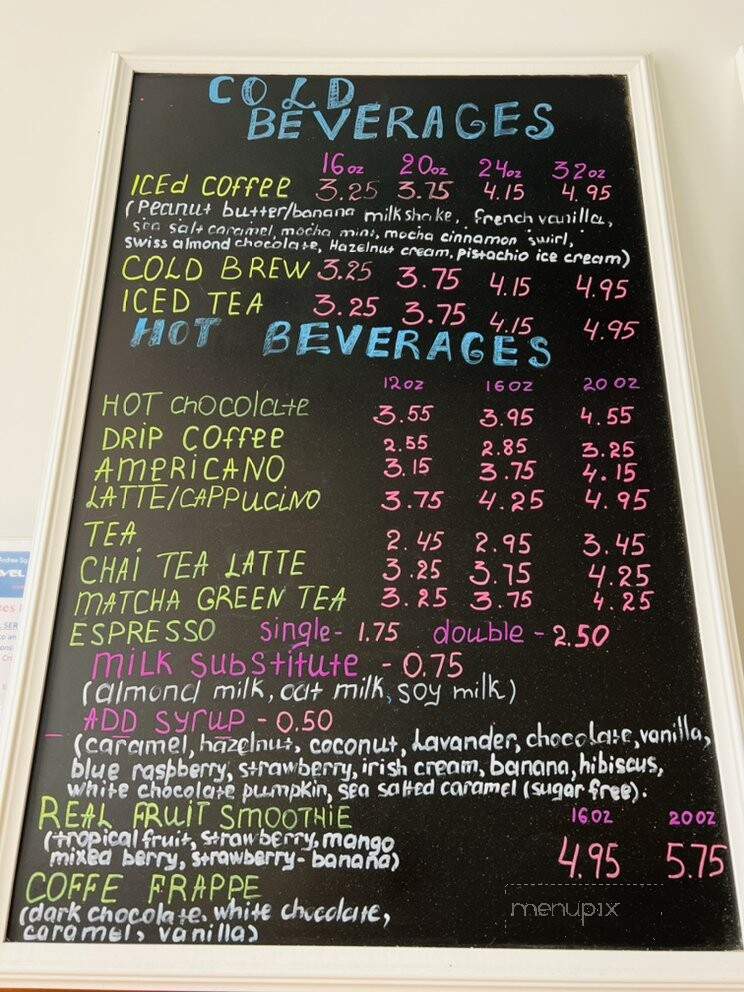 COLD
BEVERAGES
16oz 20oz 24oz 32oz
ICEd COffee 3.25 3.75 4.15 4.95
(Peanut butter/banana milkshake, french vanilla,
sea salt caramel, mocha mint, mocha cinnamon swirl,
swiss almond chocolate, Hazelnut cream, pistachio ice cream)
COLD BREW 3.25 3.75 4.15 4.95
ICED TEA 3.25 3.75 4.15 4.95
HOT BEVERAGES
12oz 16oz 20oz
HOT chocolate 3.55 3.95 4.55
DRIP COffee 2.55 2.85 3.25
AMERICANO 3.15 3.75 4.15
LATTE/CAPPUCINO 3.75 4.25 4.95
TEA 2.45 2.95 3.45
CHAI TEA LATTE 3.25 3.75 4.25
MATCHA GREEN TEA 3.25 3.75 4.25
ESPRESSO single- 1.75 double - 2.50
MILK SUBSTITUTE - 0.75
(almond milk, oat milk, soy milk)
- ADD SYRUP - 0.50
(caramel, hazelnut, coconut, Lavander, chocolate, vanilla,
blue raspberry, strawberry, irish cream, banana, hibiscus,
white chocolate pumpkin, sea salted caramel (sugar free).
REAL FRUIT SMOOTHIE 16oz 20oz
(tropical fruit, strawberry, mango
mixed berry, strawberry-banana) 4.95 5.75
COFFE FRAPPE
(dark chocolate, white chocolate,
caramel, vanilla)
menupix